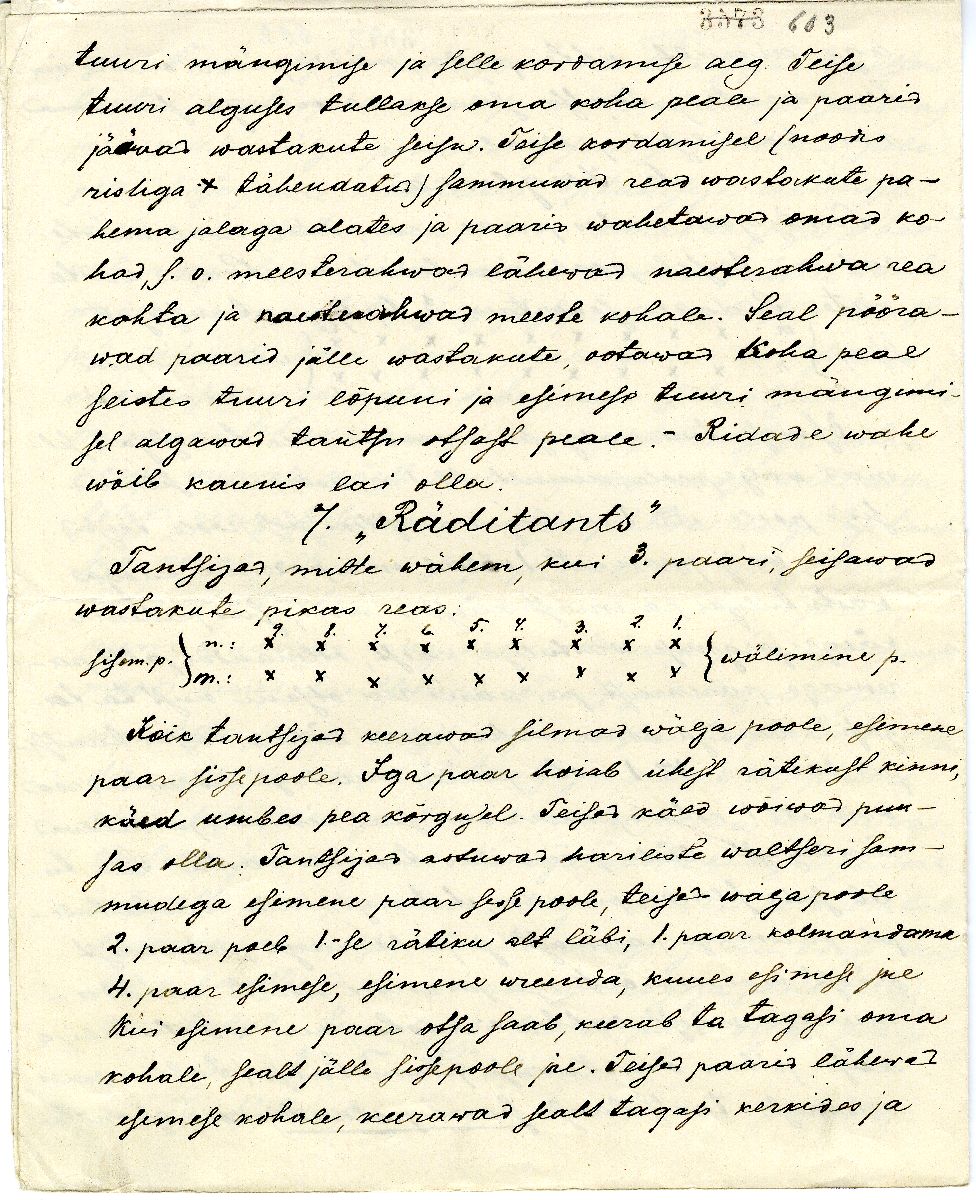 3373 603
tuuri mängimise ja selle kordamise aeg. Teise
tuuri alguses tullakse oma koha peale ja paarid
jääwad wastakute seisu. Teise kordamisel (noodis
ristiga × tähendatud) sammuwad read wastakute pa-
hema jalaga alates ja paarid wahetawad omad ko-
had, s. o. meesterahwad lähewad naesterahwa rea
kohta ja naesterahwad meeste kohale. Seal pööra-
wad paarid jälle wastakute, ootawad koha peal
seistes tuuri lõpuni ja esimese tuuri mängimi-
sel algawad tantsu otsast peale. - Ridade wahe
wõib kaunis lai olla.
7. „Räditants"
Tantsijad, mitte wähem, kui 3. paari, seisawad
wastakute pikas reas:
9. 8. 7. 6. 5. 4. 3. 2. 1.
sisem. p. } n.: × × × × × × × × × { wälimine p.
m.: × × × × × × × × ×
Kõik tantsijad keerawad silmad wälja poole, esimene
paar sissepoole. Iga paar hoiab ühest rätikust kinni,
käed umbes pea kõrgusel. Teised käed wõiwad puu-
sas olla. Tantsijad astuwad hariliste waltseri sam-
mudega esimene paar sisse poole, teised wälja poole
2. paar poeb 1.-se rätiku alt läbi, 1. paar kolmandama
4. paar esimese, esimene wienda, kuues esimese jne
Kui esimene paar otsa saab, keerab ta tagasi oma
kohale, sealt jälle sissepoole jne. Teised paarid lähewad
esimese kohale, keerawad sealt tagasi kerkides ja